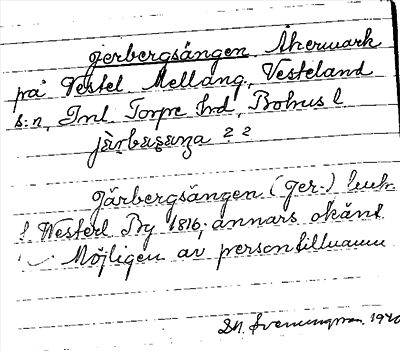 gerbergsängen Åkermark
på Vestel Mellang, Vesteland
s:n, Inl Torpe hrd, Bohus l.
järbasaŋa 2 2
gärbergsängen (ger-)
f Westerl By 1816, annars okänt
Möjligen av personttillnamn
1940